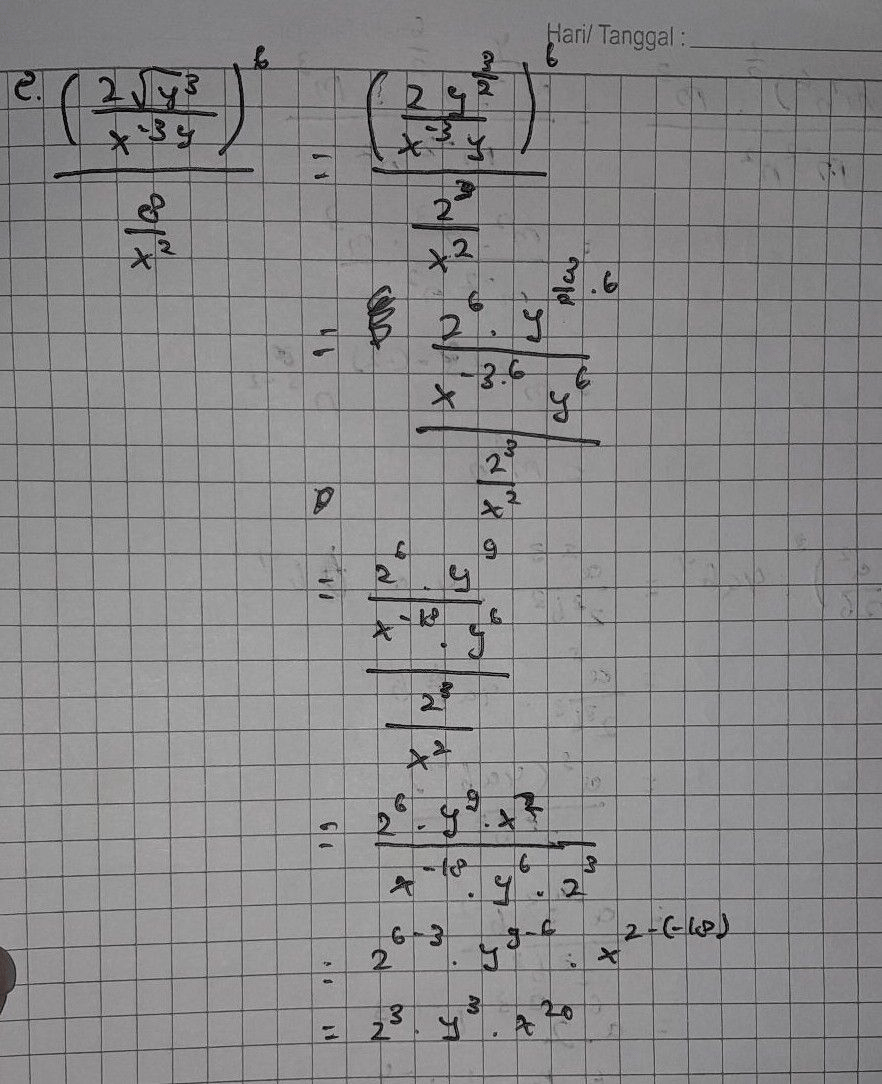 Hari/ Tanggal :
e. (2√y³ / x⁻³y)⁶ / (8 / x²) = (2 y^(3/2) / x⁻³ y)⁶ / (2³ / x²)
= (2⁶ · y^(3/2 · 6) / x^(-3·6) y⁶) / (2³ / x²)
= (2⁶ · y⁹ / x⁻¹⁸ · y⁶) / (2³ / x²)
= 2⁶ · y⁹ · x² / x⁻¹⁸ · y⁶ · 2³
= 2^(6-3) · y^(9-6) · x^(2-(-18))
= 2³ · y³ · x²⁰